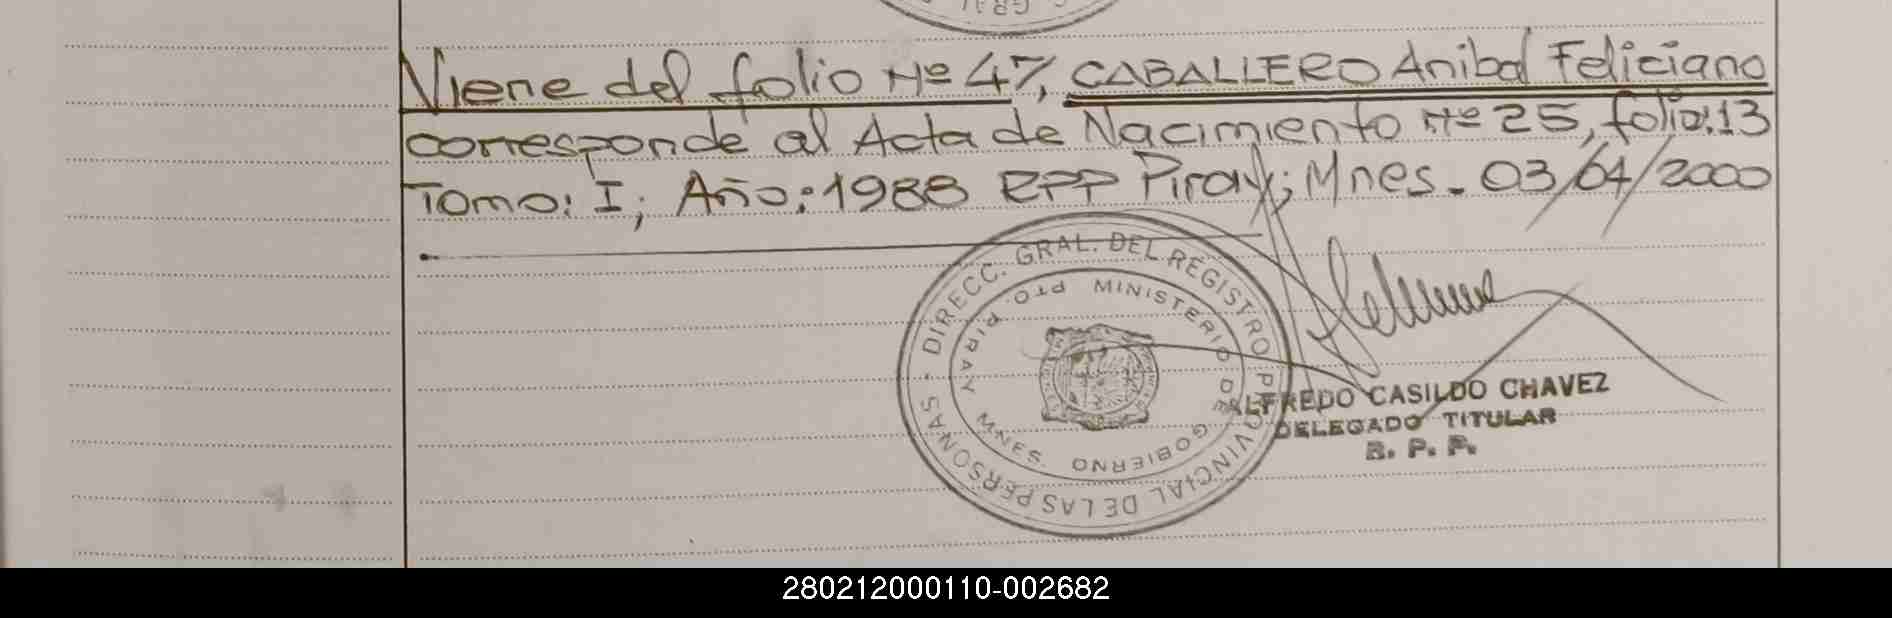 Viene del folio Nº 47, CABALLERO Anibal Feliciano
corresponde al Acta de Nacimiento Nº 25, folio: 13
Tomo: I; Año: 1988 RPP Piray; Mnes. 03/04/2000
DIRECC. GRAL. DEL REGISTRO PROVINCIAL DE LAS PERSONAS
MINISTERIO DE GOBIERNO
PTO. PIRAY MNES.
ALFREDO CASILDO CHAVEZ
DELEGADO TITULAR
R. P. P.
280212000110-002682